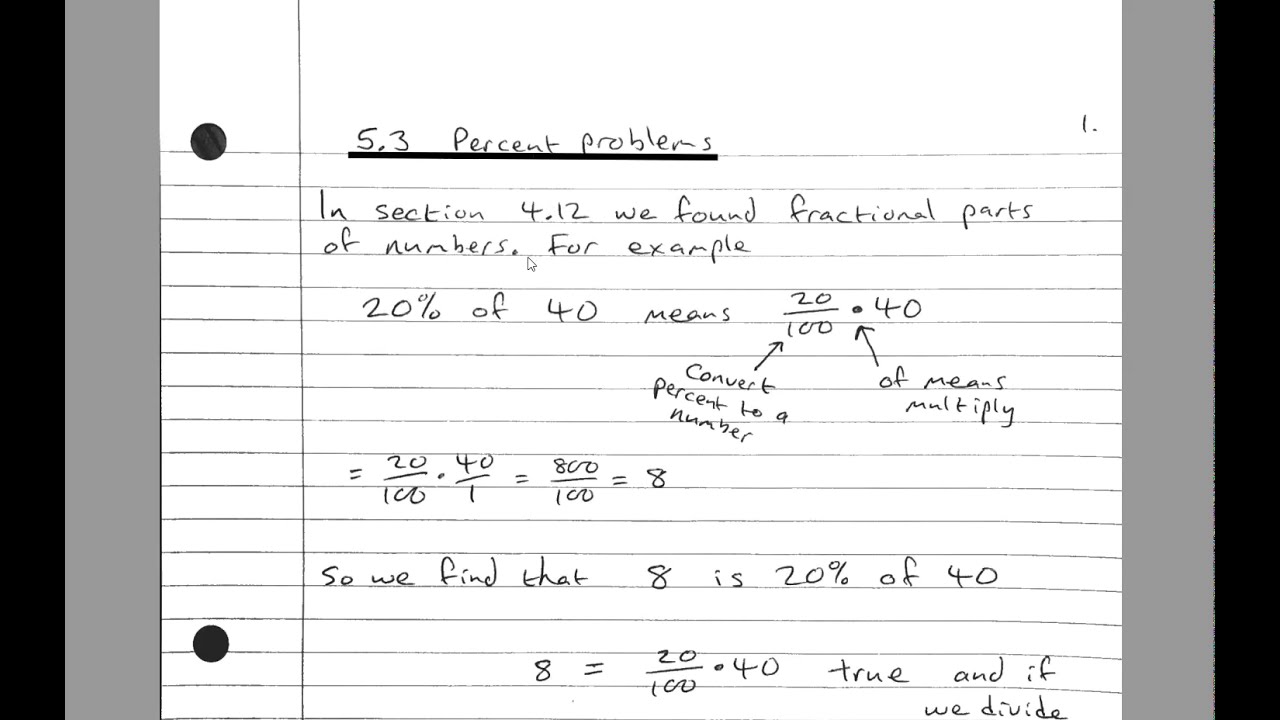 1.
5.3 Percent problems
In section 4.12 we found fractional parts
of numbers. For example
20% of 40 means 20/100 • 40
Convert
percent to a
number
of means
multiply
= 20/100 • 40/1 = 800/100 = 8
So we find that 8 is 20% of 40
8 = 20/100 • 40 true and if
we divide